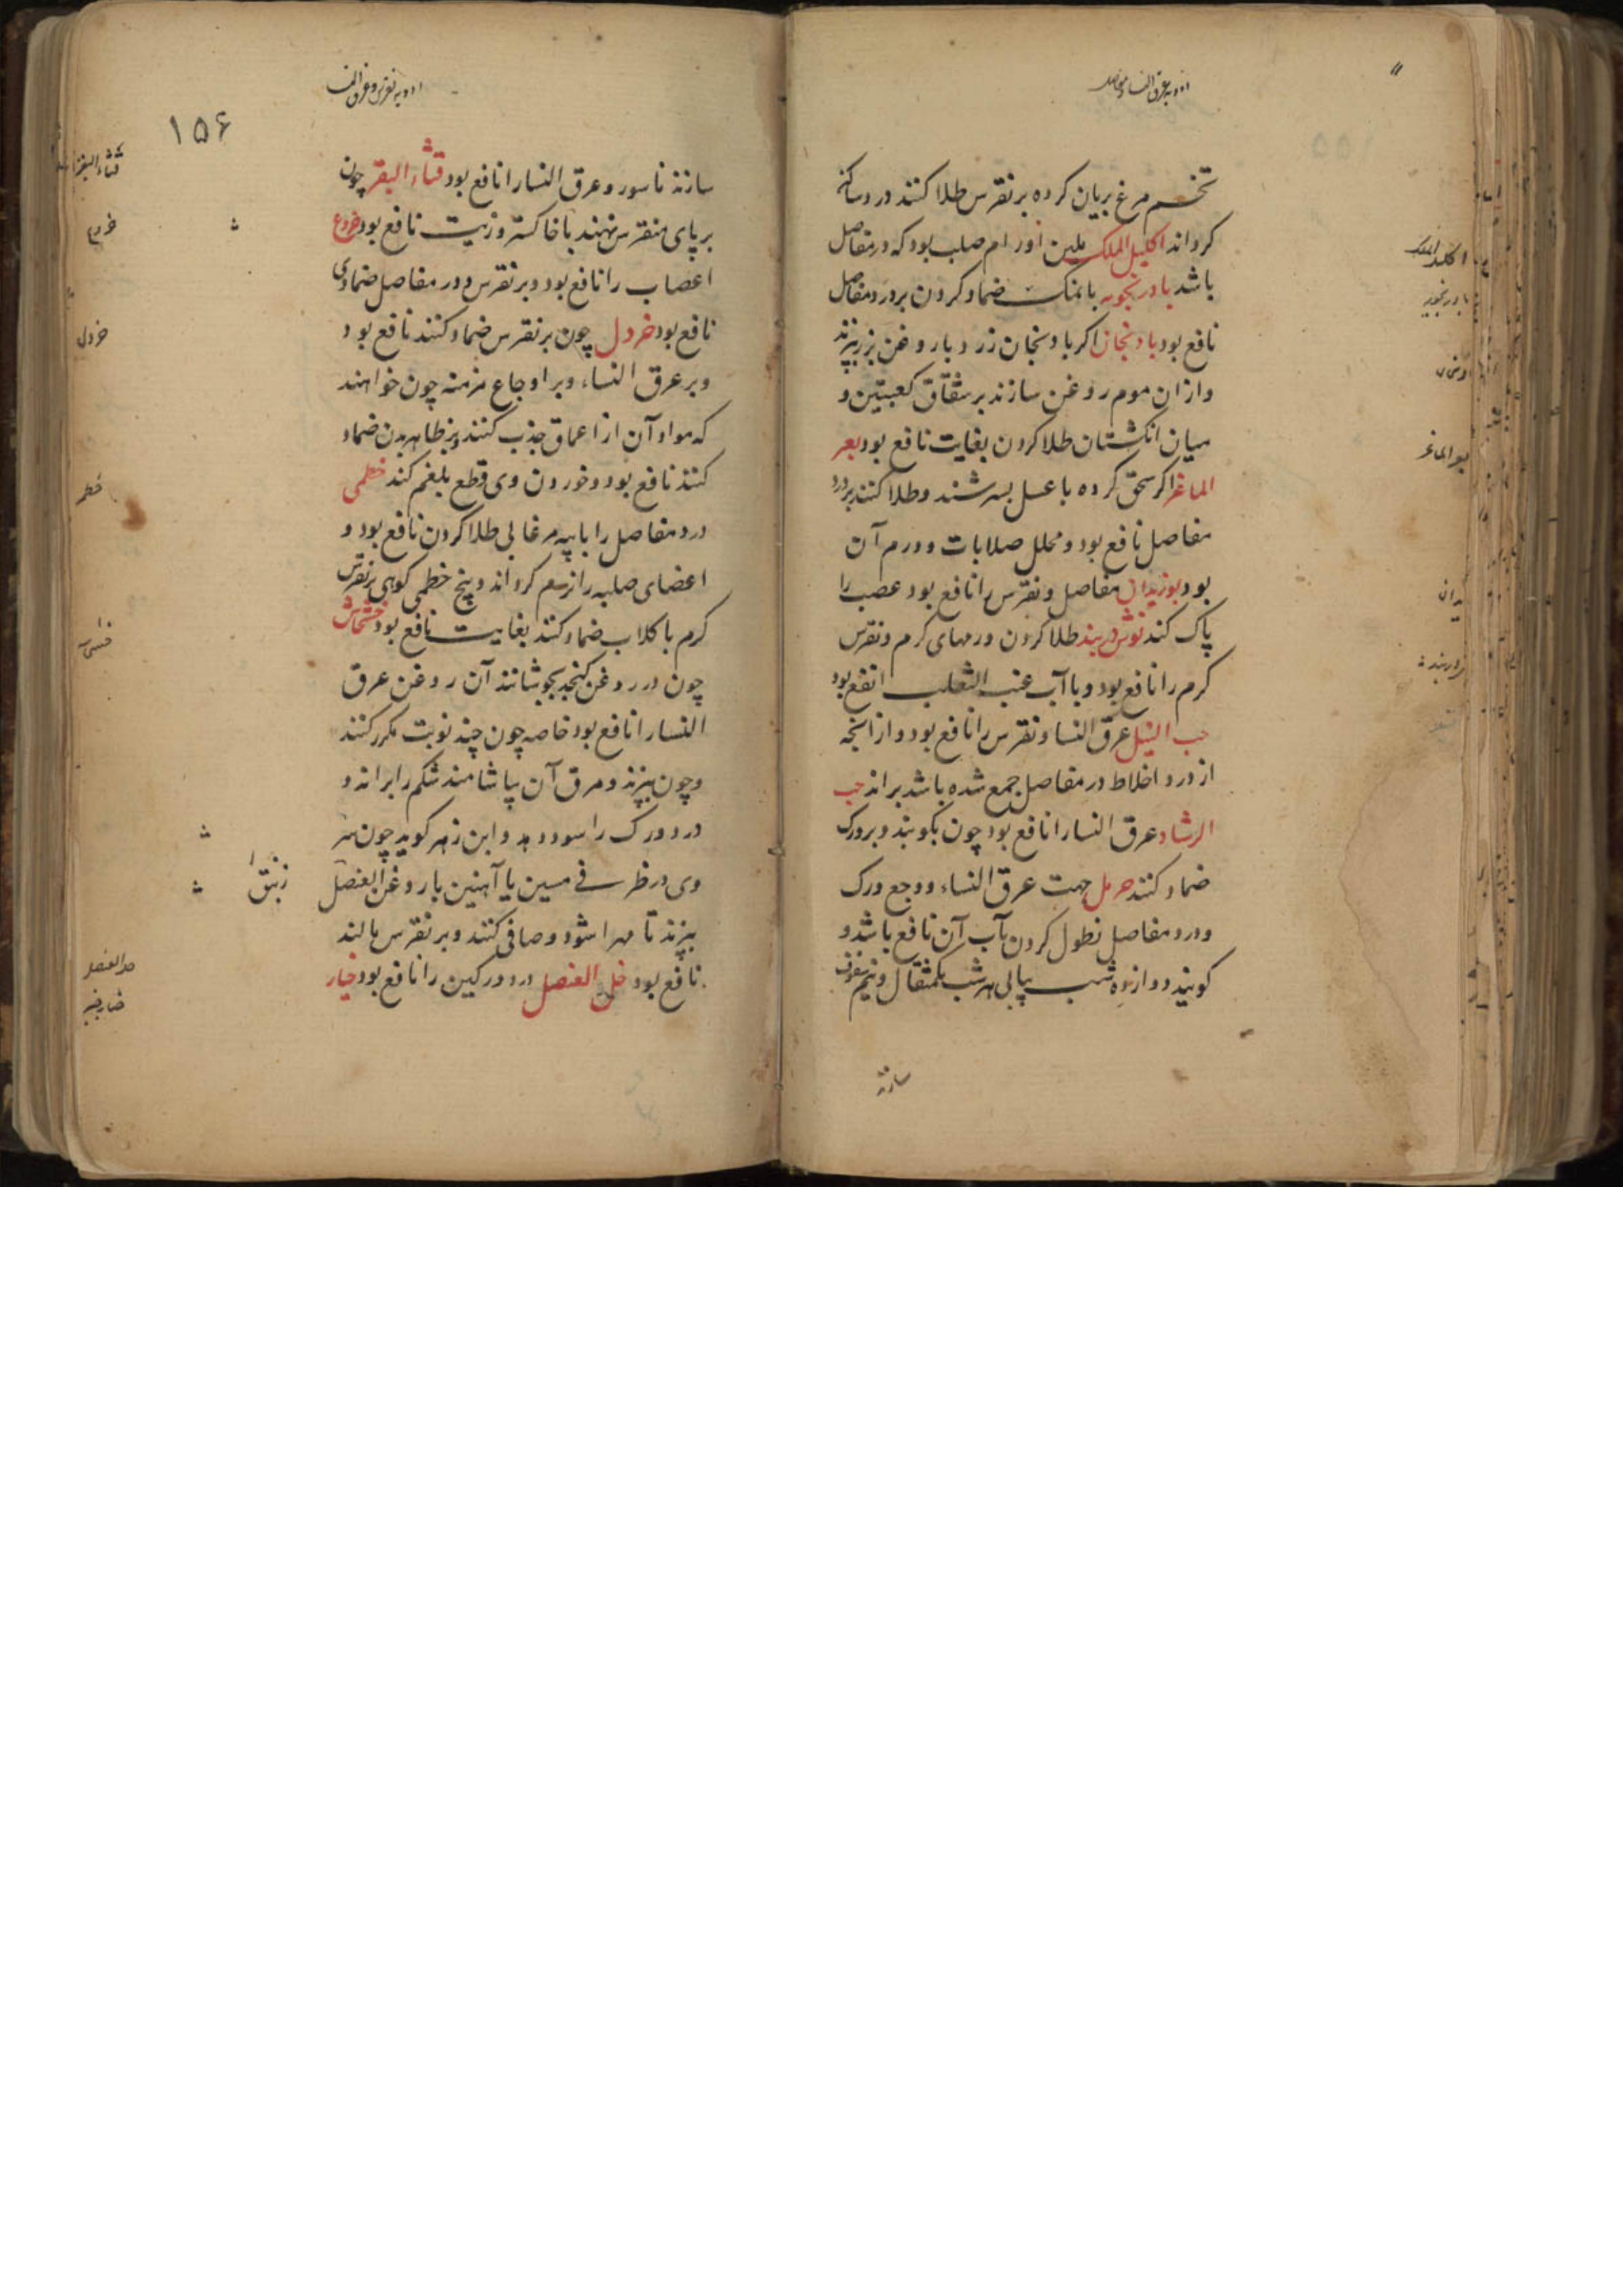 ادویه عرق النسا و مفاصل
تخم مرغ بریان کرده بر نقرس طلا کنند درد ساکن
کرداند اکلیل الملک ملین اورام صلب بود که در مفاصل
باشد بادرنجبویه با نمک ضماد کردن بر درد مفاصل
نافع بود بادنجان اکر بادنجان زرد با روغن بزر بپزند
و ازان موم روغن سازند بر شقاق کعبتین و
میان انکشتان طلا کردن بغایت نافع بود بعر
الماعز اکر سحق کرده با عسل بسرشند و طلا کنند بر درد
مفاصل نافع بود و محلل صلابات و ورم آن
بود بوزیدان مفاصل و نقرس را نافع بود عصب را
پاک کند نوش دربند طلا کردن ورمهای کرم و نقرس
کرم را نافع بود و با آب عنب الثعلب انفع بود
حب النیل عرق النسا و نقرس را نافع بود و از انجه
از درد اخلاط در مفاصل جمع شده باشد براند حب
الرشاد عرق النسا را نافع بود چون بکوبند و بر ورک
ضماد کنند حرمل جهت عرق النساء و وجع ورک
و درد مفاصل نطول کردن بآب آن نافع باشد و
کویند دوازده شب پیاپی هر شب یکمثقال و نیم سفوف
سازند
ادویه نقرس و عرق النسا
۱۵۶
سازند ناسور و عرق النسا را نافع بود قثاء البقر چون
بر پای منقرس نهند با خاکستر و زیت نافع بود خروع
اعصاب را نافع بود و بر نقرس و درد مفاصل ضماد وی
نافع بود خردل چون بر نقرس ضماد کنند نافع بود
و بر عرق النساء و بر اوجاع مزمنه چون خواهند
که مواد آن از اعماق جذب کنند و بر ظاهر بدن ضماد
کنند نافع بود و خوردن وی قطع بلغم کند خطمی
درد مفاصل را با پیه مرغابی طلا کردن نافع بود و
اعضای صلبه را نرم کرداند و بیخ خطمی کوهی بر نقرس
کرم با کلاب ضماد کنند بغایت نافع بود خشخاش
چون در روغن کنجد بجوشانند آن روغن عرق
النسا را نافع بود خاصه چون چند نوبت مکرر کنند
و چون بپزند و مرق آن بیاشامند شکم را براند و
درد ورک را سود دهد و ابن زهر کوید چون
وی در ظرفی مسین یا آهنین با روغن العنصل زنبق
بپزند تا مهرا شود و صافی کنند و بر نقرس مالند
نافع بود خل العنصل درد ورکین را نافع بود خیار
اکلیل الملک
بادرنجبویه
بعر الماعز
قثاء البقر
خروع
خردل
خطمی
خل العنصل